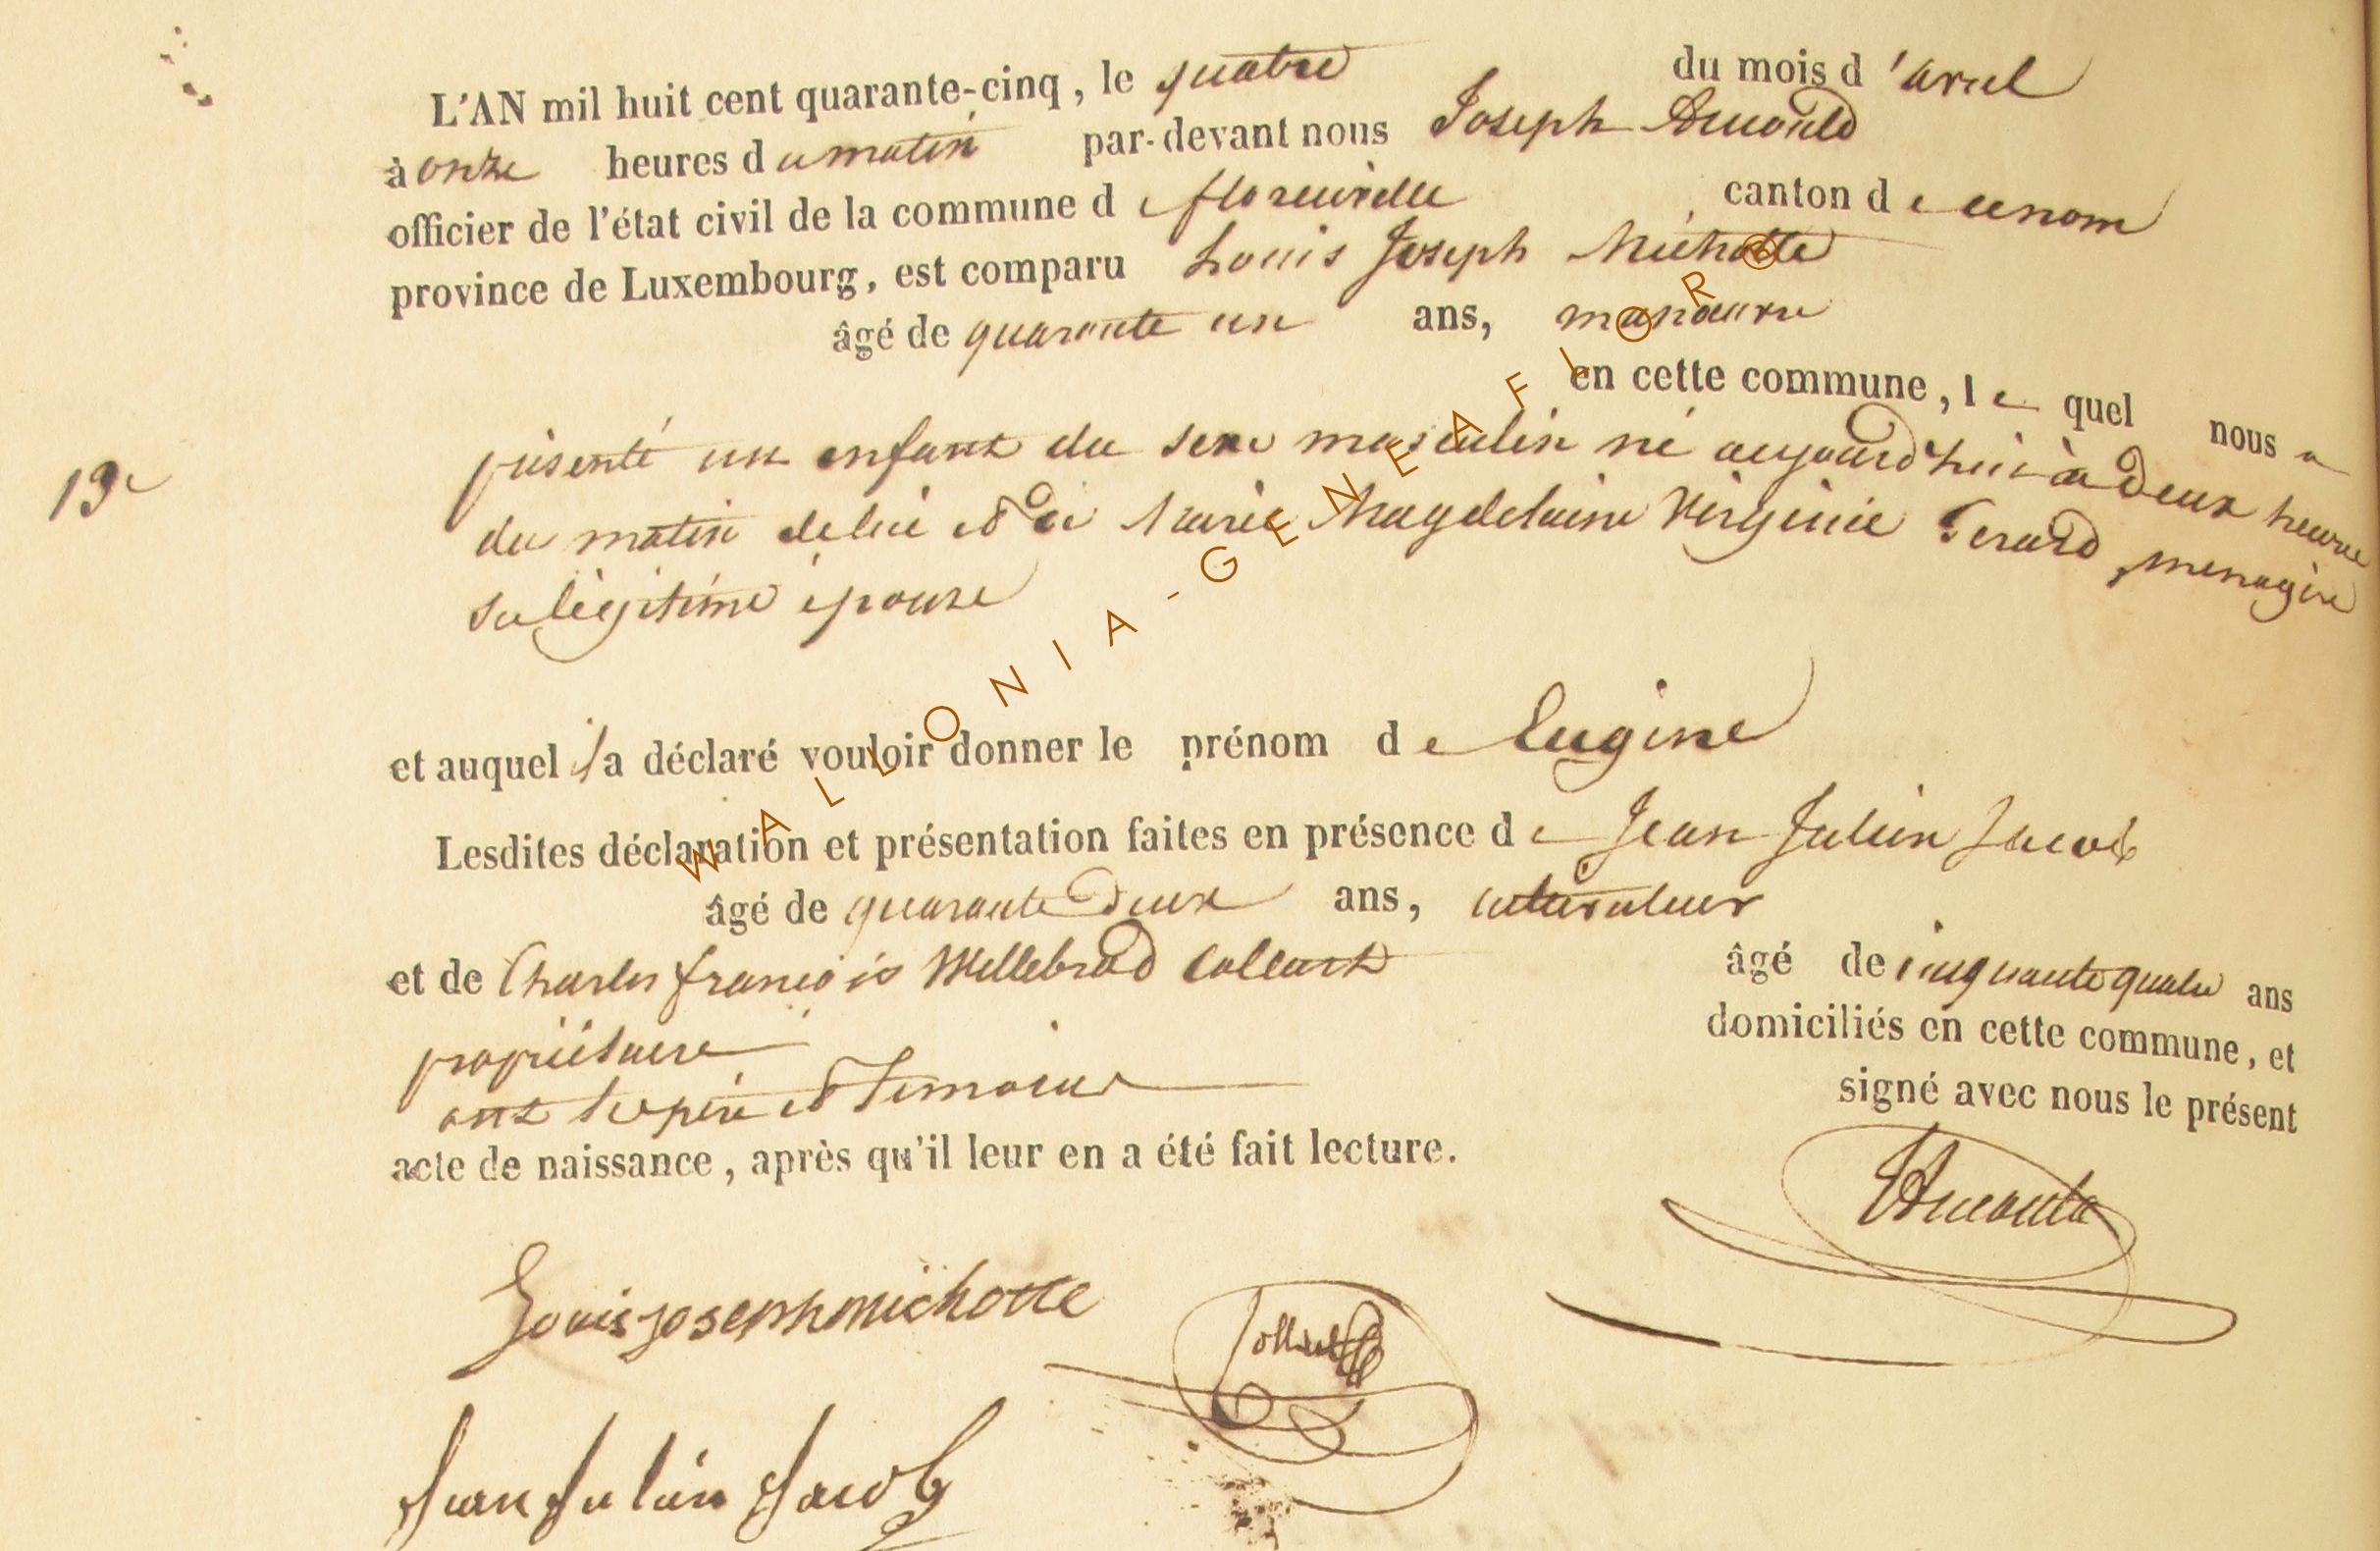 L'AN mil huit cent quarante-cinq, le quatre du mois d'avril
à onze heures du matin par-devant nous Joseph Arnould
officier de l'état civil de la commune de florenville canton de ce nom
province de Luxembourg, est comparu Louis Joseph Michotte
âgé de quarante un ans, manœuvre
en cette commune, lequel nous a
présenté un enfant du sexe masculin né aujourd'hui à deux heure
13e
du matin de lui et de Marie Magdelaine Virginie Gerard, menagère
sa légitime épouse
et auquel il a déclaré vouloir donner le prénom de Eugène
Lesdites déclaration et présentation faites en présence de Jean Julien Jacob
âgé de quarante deux ans, cultivateur
et de Charles françois Willebrod Collart âgé de cinquante quatre ans
propriétaire domiciliés en cette commune, et
ont le père et temoins signé avec nous le présent
acte de naissance, après qu'il leur en a été fait lecture.
Louis joseph michotte
Jean Julien Jacob
WALLONIA-GENEAFLOR®